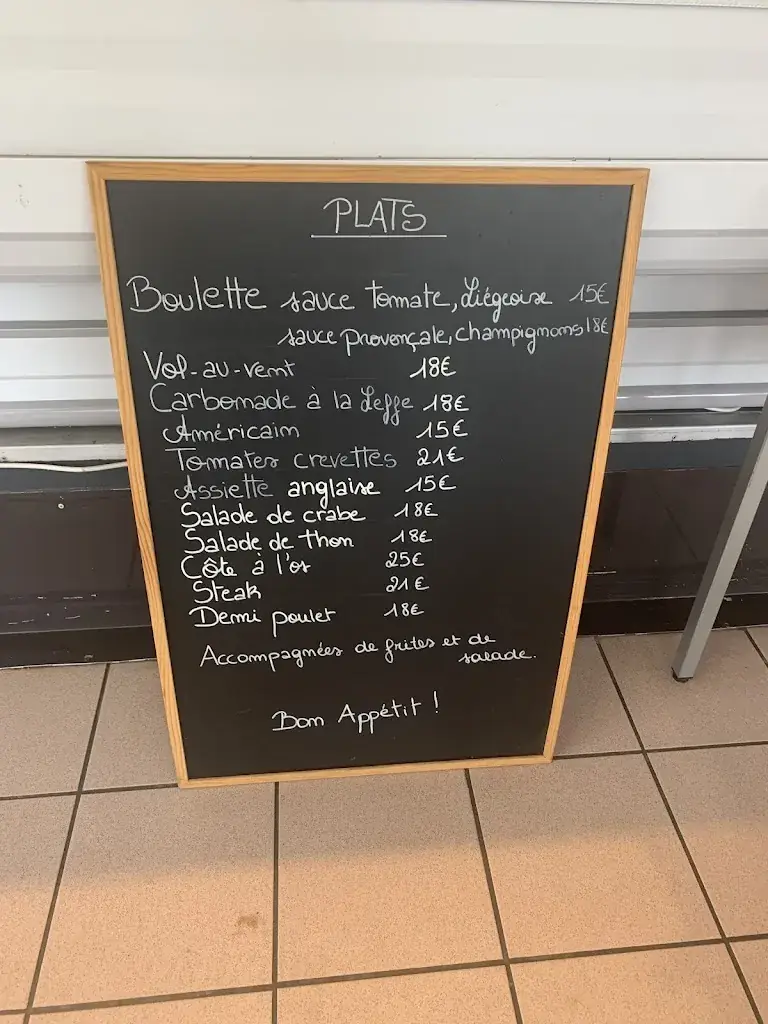 PLATS
Boulette sauce tomate, Liégeoise 15€
sauce provençale, champignons 18€
Vol-au-vent 18€
Carbonnade à la Leffe 18€
Américain 15€
Tomates crevettes 21€
Assiette anglaise 15€
Salade de crabe 18€
Salade de thon 18€
Côte à l'os 25€
Steak 21€
Demi poulet 18€
Accompagnées de frites et de
salade.
Bon Appétit !